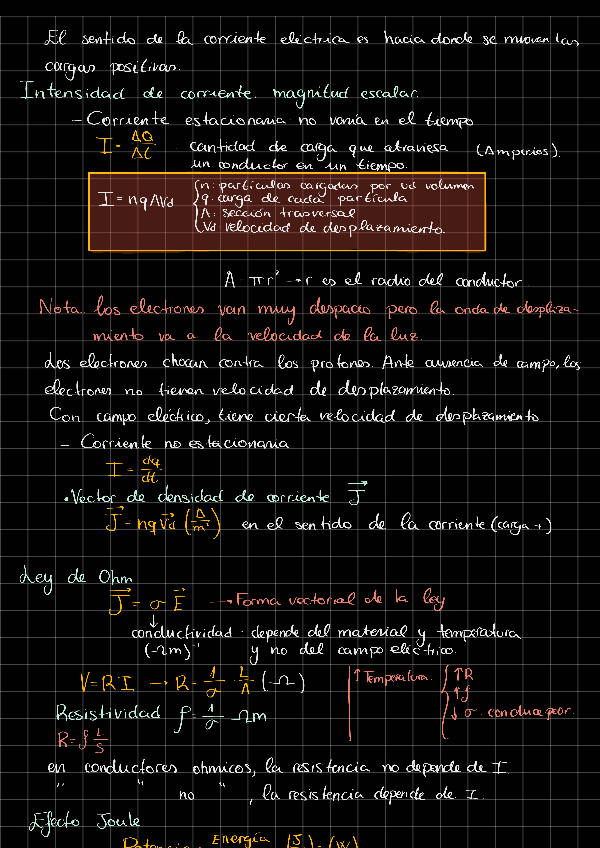 El sentido de la corriente eléctrica es hacia donde se mueven las
cargas positivas.
Intensidad de corriente. magnitud escalar.
- Corriente estacionaria no varía en el tiempo
I = ΔQ/Δt cantidad de carga que atraviesa (Amperios).
un conductor en un tiempo.
I = nqAVd { n: partículas cargadas por ud volumen
q: carga de cada partícula
A: sección trasversal
Vd velocidad de desplazamiento.
A = πr² → r es el radio del conductor
Nota: los electrones van muy despacio pero la onda de desplaza-
miento va a la velocidad de la luz.
Los electrones chocan contra los protones. Ante ausencia de campo, los
electrones no tienen velocidad de desplazamiento.
Con campo eléctrico, tiene cierta velocidad de desplazamiento
- Corriente no estacionaria
I = dq/dt
• Vector de densidad de corriente J⃗
J⃗ = nqV⃗d (A/m²) en el sentido de la corriente (carga +)
Ley de Ohm
J⃗ = σ E⃗ → Forma vectorial de la ley
↓
conductividad · depende del material y temperatura
(Ωm)⁻¹ y no del campo eléctrico.
V = R·I → R = 1/σ · L/A (Ω) ↑ Temperatura { ↑R
↑ρ
↓σ · conduce peor.
Resistividad ρ = 1/σ Ωm
R = ρ L/S
en conductores ohmicos, la resistencia no depende de I.
" " no " , la resistencia depende de I.
Efecto Joule
Potencia = Energía (J/ ) = (W)